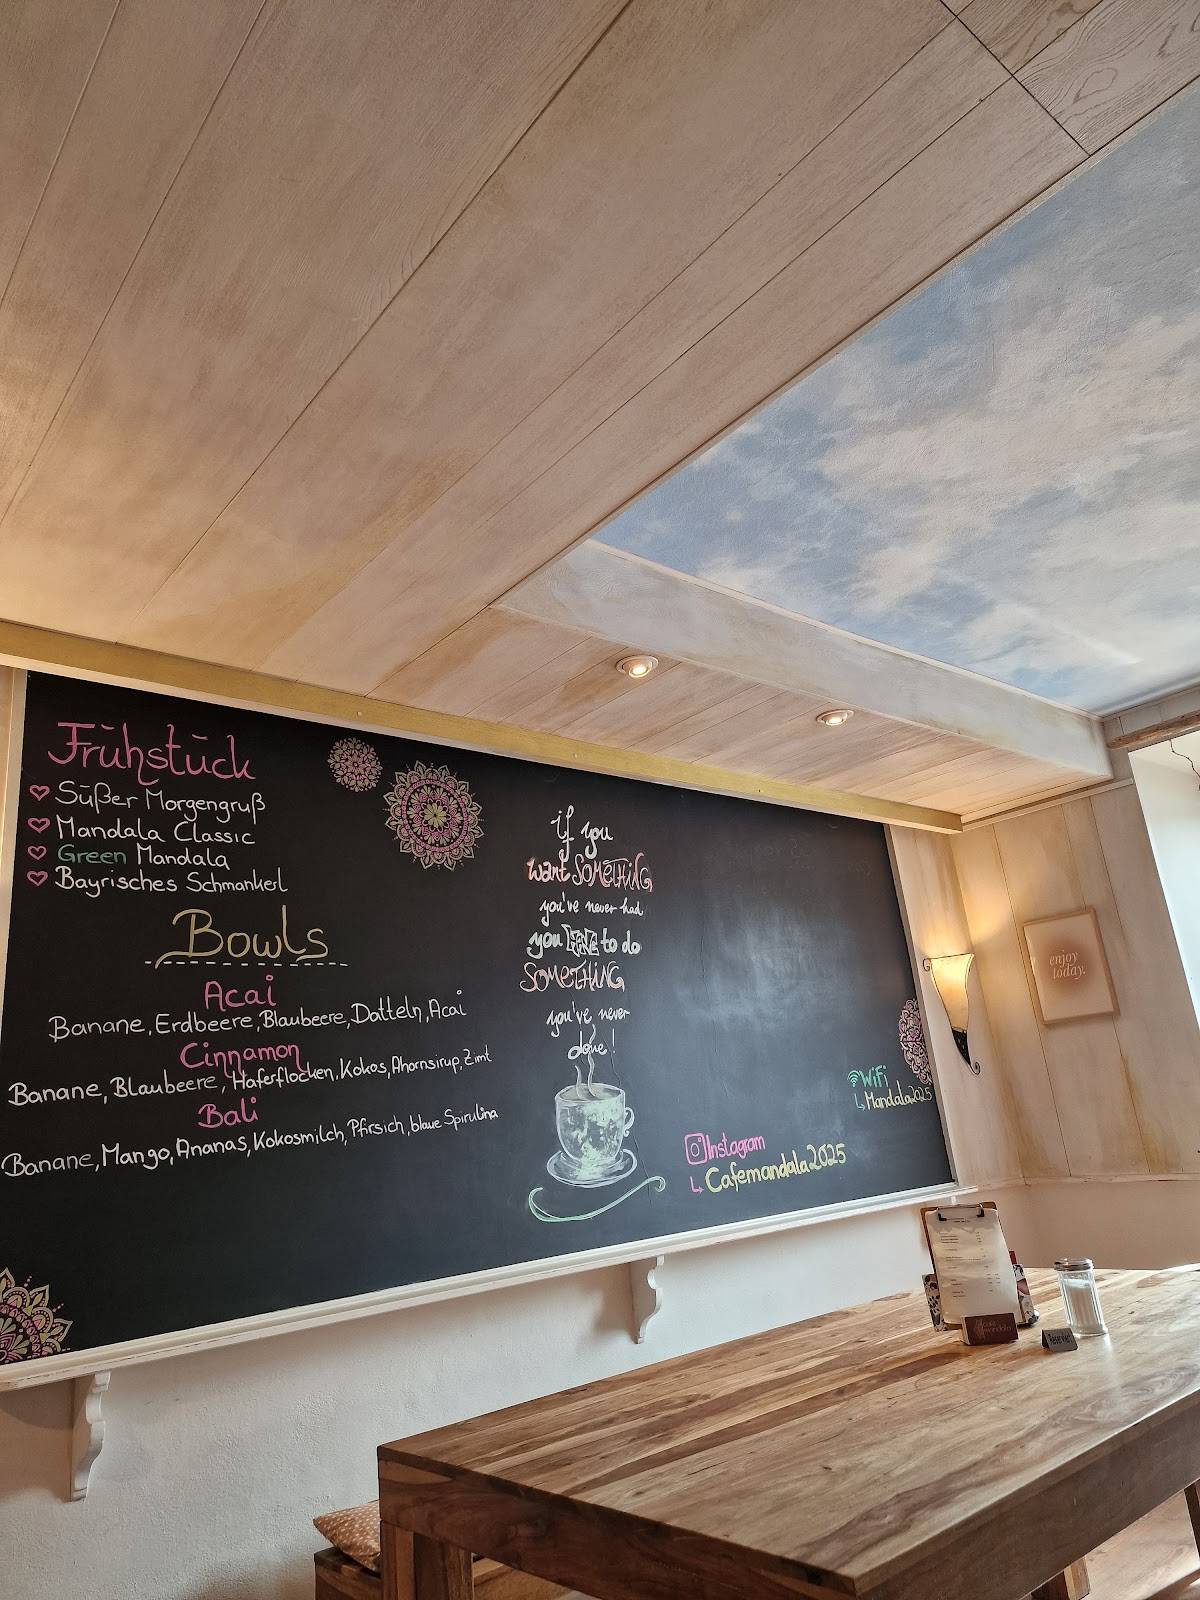 Frühstück
Süßer Morgengruß
Mandala Classic
Green Mandala
Bayrisches Schmankerl
Bowls
Acai
Banane, Erdbeere, Blaubeere, Datteln, Acai
Cinnamon
Banane, Blaubeere, Haferflocken, Kokos, Ahornsirup, Zimt
Bali
Banane, Mango, Ananas, Kokosmilch, Pfirsich, blaue Spirulina
if you
want SOMETHING
you've never had
you to do
SOMETHING
you've never
done!
Instagram
Cafemandala2025
WiFi
Mandala2025
enjoy
today.
Reserviert